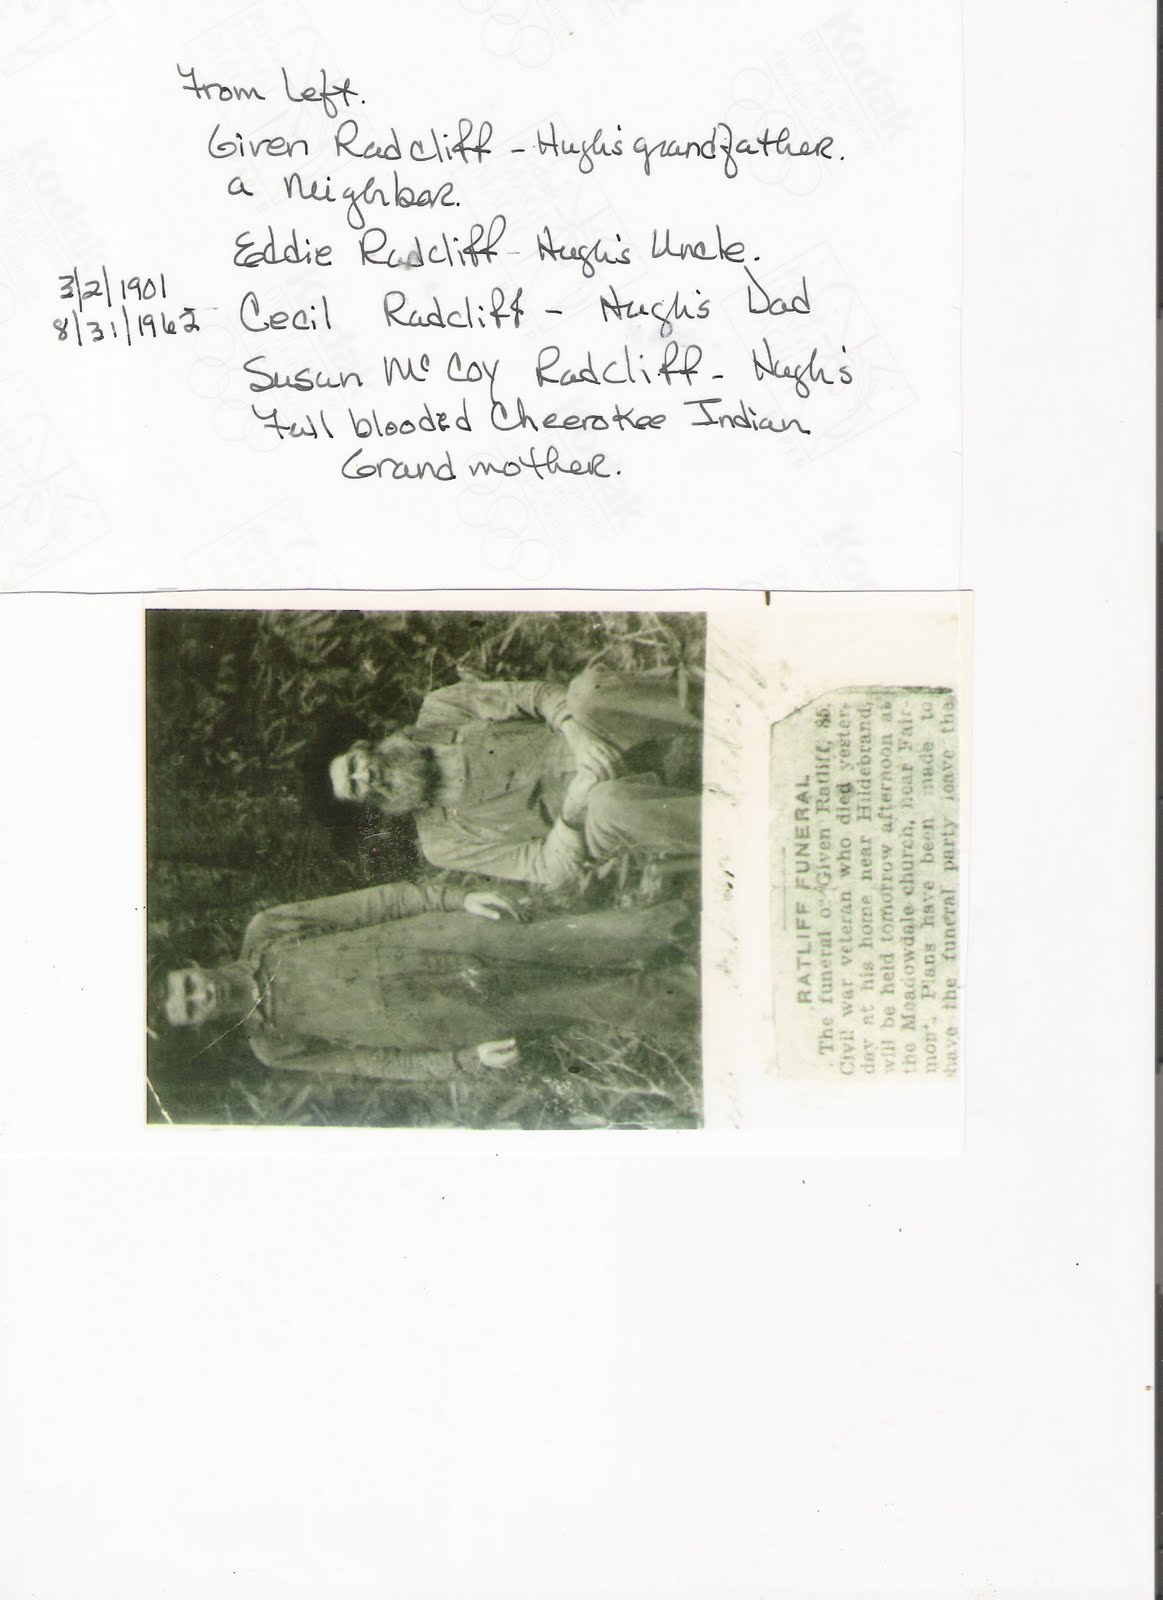 From Left.
Given Radcliff - Hugh's grandfather.
a neighbor.
Eddie Radcliff - Hugh's Uncle.
3/2/1901
8/31/1962 - Cecil Radcliff - Hugh's Dad
Susan McCoy Radcliff - Hugh's
Full blooded Cheerokee Indian
Grand mother.
Kodak
Kodak
Kodak
Kodak
RATLIFF FUNERAL
The funeral of Given Ratliff, 85,
Civil war veteran who died yester-
day at his home near Hildebrand,
will be held tomorrow afternoon at
the Meadowdale church, near Fair-
mont. Plans have been made to
have the funeral party leave the